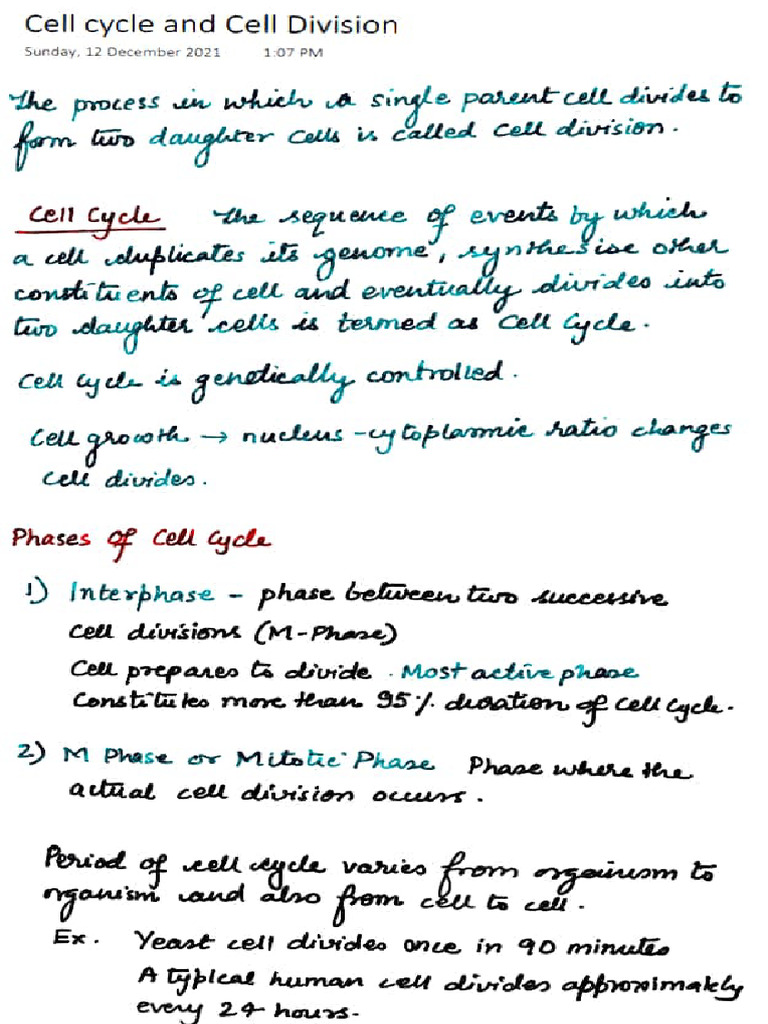 Cell cycle and Cell Division
Sunday, 12 December 2021 1:07 PM
The process in which a single parent cell divides to
form two daughter cells is called cell division.
Cell Cycle The sequence of events by which
a cell duplicates its genome, synthesise other
constituents of cell and eventually divides into
two daughter cells is termed as cell cycle.
Cell cycle is genetically controlled.
Cell growth → nucleus-cytoplasmic ratio changes
cell divides.
Phases of Cell Cycle
1) Interphase - phase between two successive
cell divisions (M-Phase)
Cell prepares to divide. Most active phase
Constitutes more than 95% duration of cell cycle.
2) M Phase or Mitotic Phase Phase where the
actual cell division occurs.
Period of cell cycle varies from organism to
organism and also from cell to cell.
Ex. Yeast cell divides once in 90 minutes
A typical human cell divides approximately
every 24 hours.